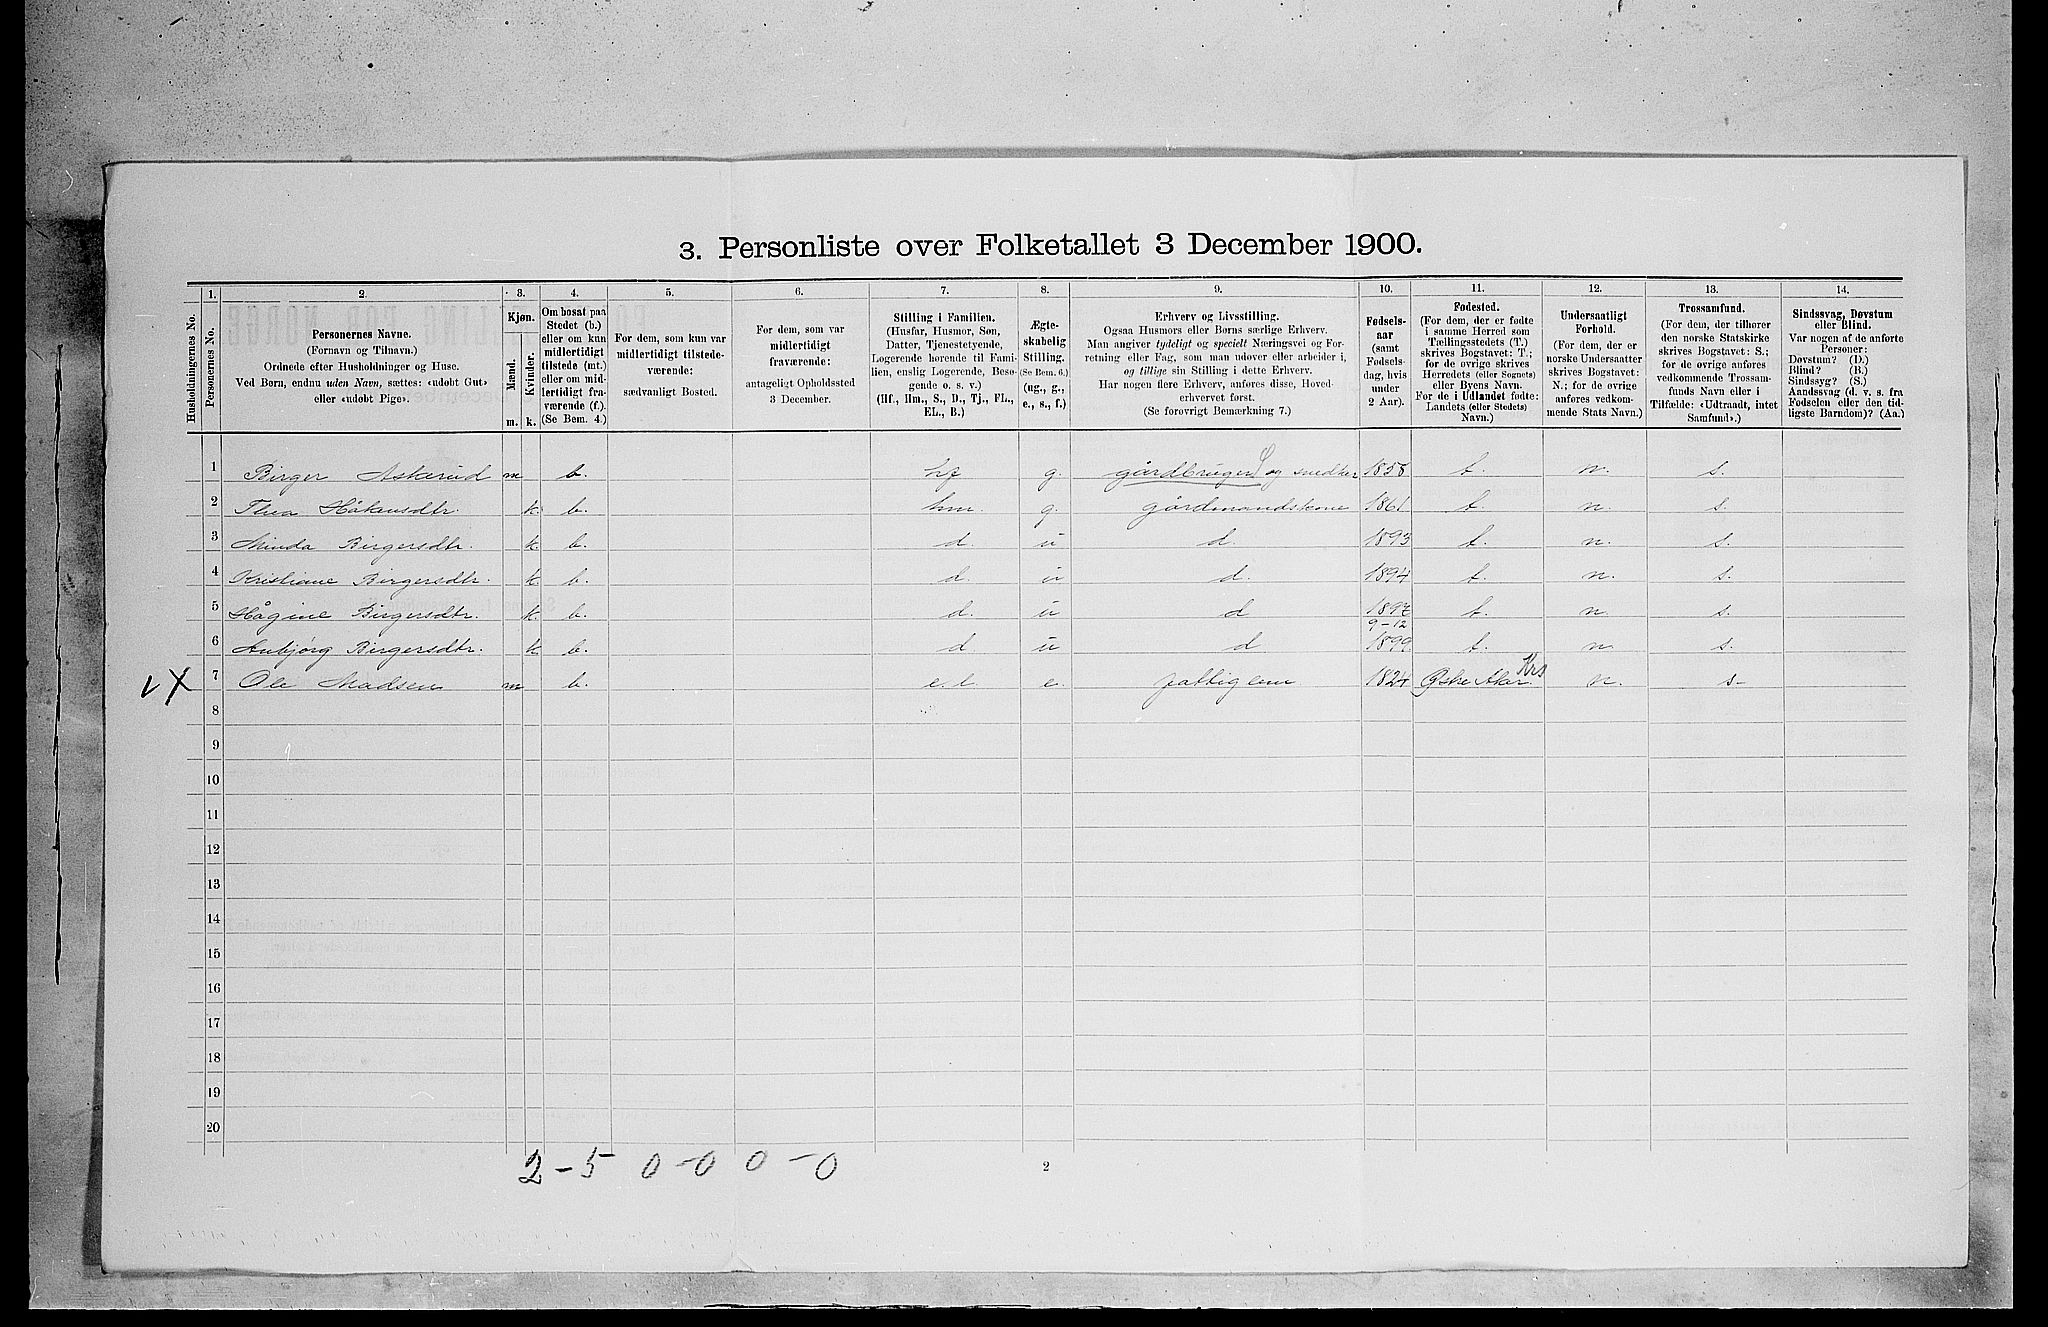 3. Personliste over Folketallet 3 December 1900.
1. 2. 3. 4. 5. 6. 7. 8. 9. 10. 11. 12. 13. 14.
Husholdningernes No.
Personernes No.
Personernes Navne.
(Fornavn og Tilnavn.)
Ordnede efter Husholdninger og Huse.
Ved Børn, endnu uden Navn, sættes: «udøbt Gut»
eller «udøbt Pige».
Kjøn.
Mænd.
Kvinder.
m. k.
Om bosat paa
Stedet (b.)
eller om kun
midlertidigt
tilstede (mt.)
eller om mid-
lertidigt fra-
værende (f.).
(Se Bem. 4.)
For dem, som kun var
midlertidigt tilstede-
værende:
sædvanligt Bosted.
For dem, som var
midlertidigt
fraværende:
antageligt Opholdssted
3 December.
Stilling i Familien.
(Husfar, Husmor, Søn,
Datter, Tjenestetyende,
Logerende hørende til Fami-
lien, enslig Logerende, Besø-
gende o. s. v.)
(Hf., Hm., S., D., Tj., FL.,
EL., B.)
Ægte-
skabelig
Stilling.
(Se Bem. 6.)
(ug., g.,
e., s., f.)
Erhverv og Livsstilling.
Ogsaa Husmors eller Børns særlige Erhverv.
Man angiver tydeligt og specielt Næringsvei og For-
retning eller Fag, som man udøver eller arbeider i,
og tillige sin Stilling i dette Erhverv.
Har nogen flere Erhverv, anføres disse, Hoved-
erhvervet først.
(Se forøvrigt Bemærkning 7.)
Fødsels-
aar
(samt
Fødsels-
dag, hvis
under
2 Aar).
Fødested.
(For dem, der er fødte
i samme Herred som
Tællingsstedets (T.)
skrives Bogstavet: T.;
for de øvrige skrives
Herredets (eller Sognets)
eller Byens Navn.
For de i Udlandet fødte:
Landets (eller Stedets)
Navn.)
Undersaatligt
Forhold.
(For dem, der er
norske Undersaatter
skrives Bogstavet:
N.; for de øvrige
anføres vedkom-
mende Stats Navn.)
Trossamfund.
(For dem, der tilhører
den norske Statskirke
skrives Bogstavet: S.;
for de øvrige anføres
vedkommende Trossam-
funds Navn eller i
Tilfælde: «Udtraadt, intet
Samfund».)
Sindssvag, Døvstum
eller Blind.
Var nogen af de anførte
Personer:
Døvstum? (D.)
Blind? (B.)
Sindssyg? (S.)
Aandssvag (d. v. s. fra
Fødselen eller den tid-
ligste Barndom)? (Aa.)
1 Birger Askerud m b. hf g. gårdbruger og snedker 1858 t. n. s.
2 Thea Håkensdtr. k. b. hm. g. gårdmandskone 1861 t. n. s.
3 Minda Birgersdtr. k. b. d. u d. 1893 t. n. s.
4 Kristiane Birgersdtr. k b. d. u d. 1894 t. n. s.
5 Hågine Birgersdtr. k. b. d. u d 1897 t. n. s.
9-12
6 Anbjørg Birgersdtr. k b. d u d 1899 t. n s.
7 Ole Madsen m b. e.l. e. fattiglem 1824 n. s-
8
9
10
11
12
13
14
15
16
17
18
19
20
2-5 0-0 0-0
2